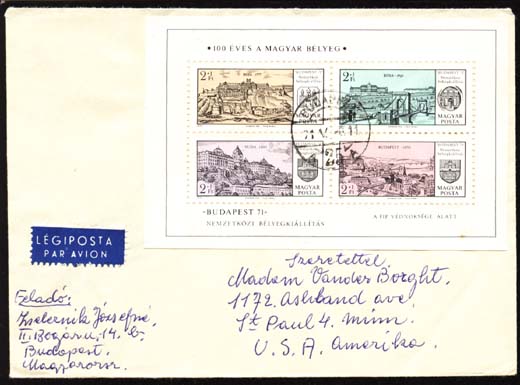 • 100 ÉVES A MAGYAR BÉLYEG •
2+1Ft
BUDAPEST 71
MAGYAR POSTA
2+1Ft
BUDAPEST 71
MAGYAR POSTA
2+1Ft
MAGYAR POSTA
2+1Ft
MAGYAR POSTA
•BUDAPEST 71•
NEMZETKÖZI BÉLYEGKIÁLLÍTÁS
A FIP VÉDNÖKSÉGE ALATT
LÉGIPOSTA
PAR AVION
Szeretettel
Madam Vander Borght.
1172. Ashland ave.
St Paul 4. Minn.
U.S.A. Amerika.
Feladó:
Józsefné
II. 14. b.
Budapest.
Magyarorsz.